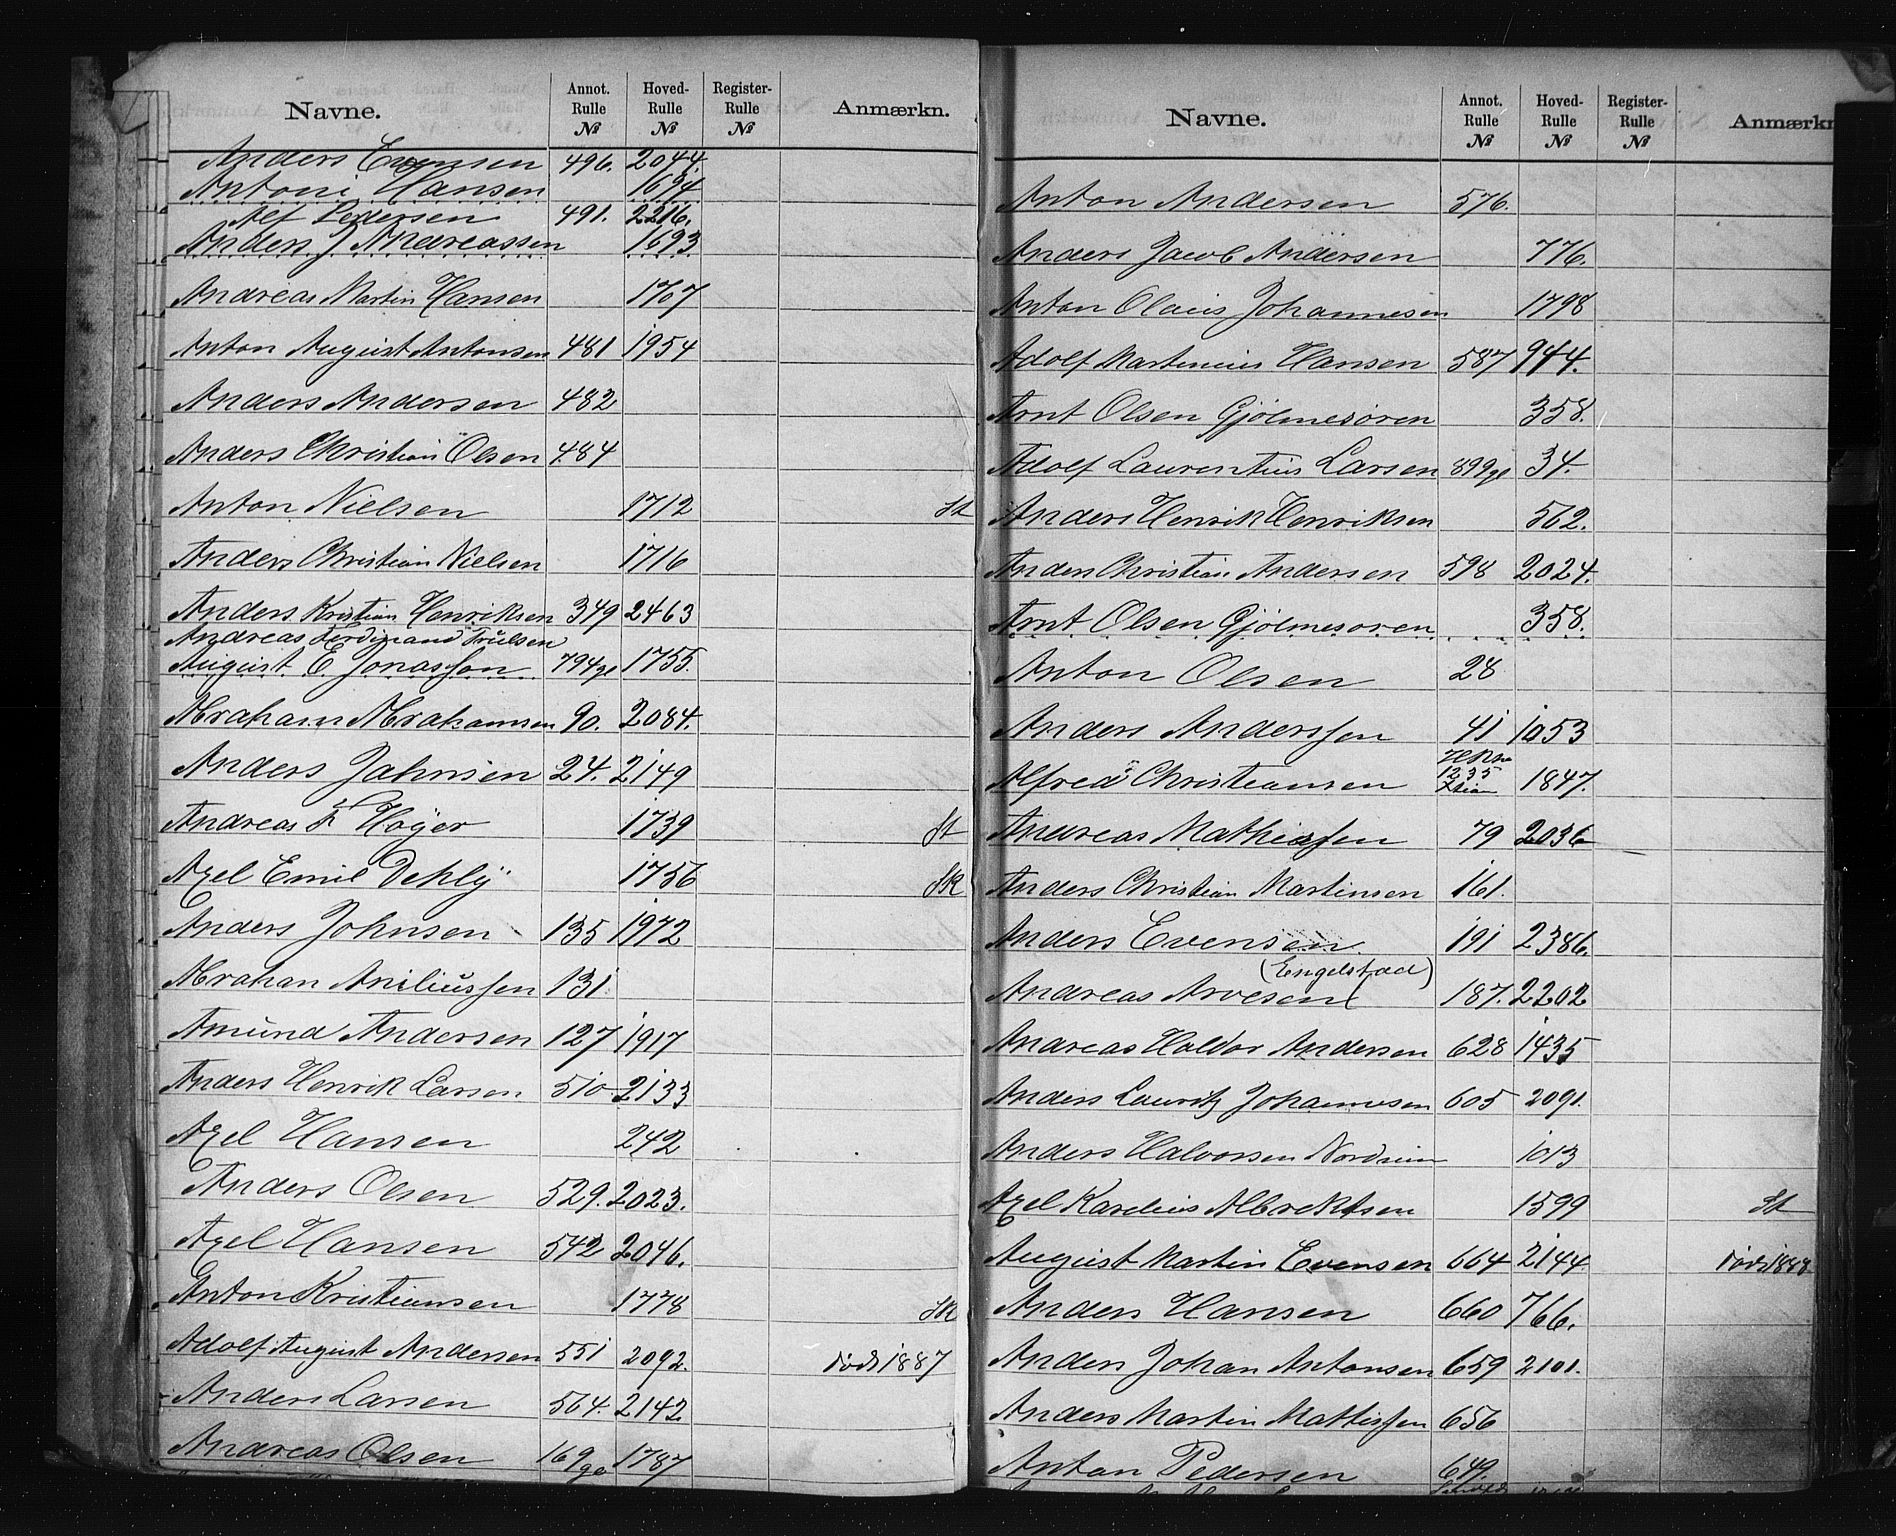 Navne. Annot. Rulle № Hoved-Rulle № Register-Rulle № Anmærkn.
Anders Evensen 496. 2044.
Antoni Hansen 1694
Alf Pedersen 491. 2216.
Anders J Andreassen 1693
Andreas Martin Hansen 1707
Anton August Antonsen 481 1954
Anders Andersen 482
Anders Christian Olsen 484
Anton Nielsen 1712 St
Anders Christian Nielsen 1716
Anders Kristian Henriksen 349 2463
Andreas Ferdinand Trulsen
August E Jonassen 794 1755.
Abraham Abrahamsen 90. 2084.
Anders Jahnsen 24. 2149
Andreas F Høyer 1739 St
Axel Emil Dehly 1756 SK
Anders Johnsen 135 1972
Abrahan Aniliussen 131
Amund Andersen 127 1917
Anders Henrik Larsen 510 2133
Axel Hansen 242
Anders Olsen 529. 2023.
Axel Hansen 542 2046.
Anton Kristiansen 1778 SK
Adolf August Andersen 551 2092. død 1887
Anders Larsen 564. 2142
Andreas Olsen 169 1787
Navne. Annot. Rulle № Hoved-Rulle № Register-Rulle № Anmærkn
Anton Andersen 576.
Anders Jacob Andersen 776.
Anton Olaus Johannesen 1798
Adolf Martinius Hansen 587 944.
Arnt Olsen Gjölmesøren 358.
Adolf Laurentius Larsen 899 34.
Anders Henrik Henriksen 562.
Anders Christian Andersen 598 2024.
Arnt Olsen Gjölmesoren 358.
Anton Olsen 28
Anders Anderssen 41 1053
Alfred Christiansen 1235 1847.
Andreas Mathiassen 79 2036
Anders Christian Martinsen 161.
Anders Evensen 191 2386.
(Engelstad)
Andreas Arvesen 187. 2202
Andreas Haldor Andersen 628 1435
Anders Lauritz Johannesen 605 2091.
Anders Halvorsen Nordrum 1013
Axel Karelius Albrektsen 1599 St
August Martin Evensen 664 2144 død 1888
Anders Hansen 660 766.
Anders Johan Antonsen 659 2101.
Anders Martin Mathissen 656
Anton Pedersen 649.